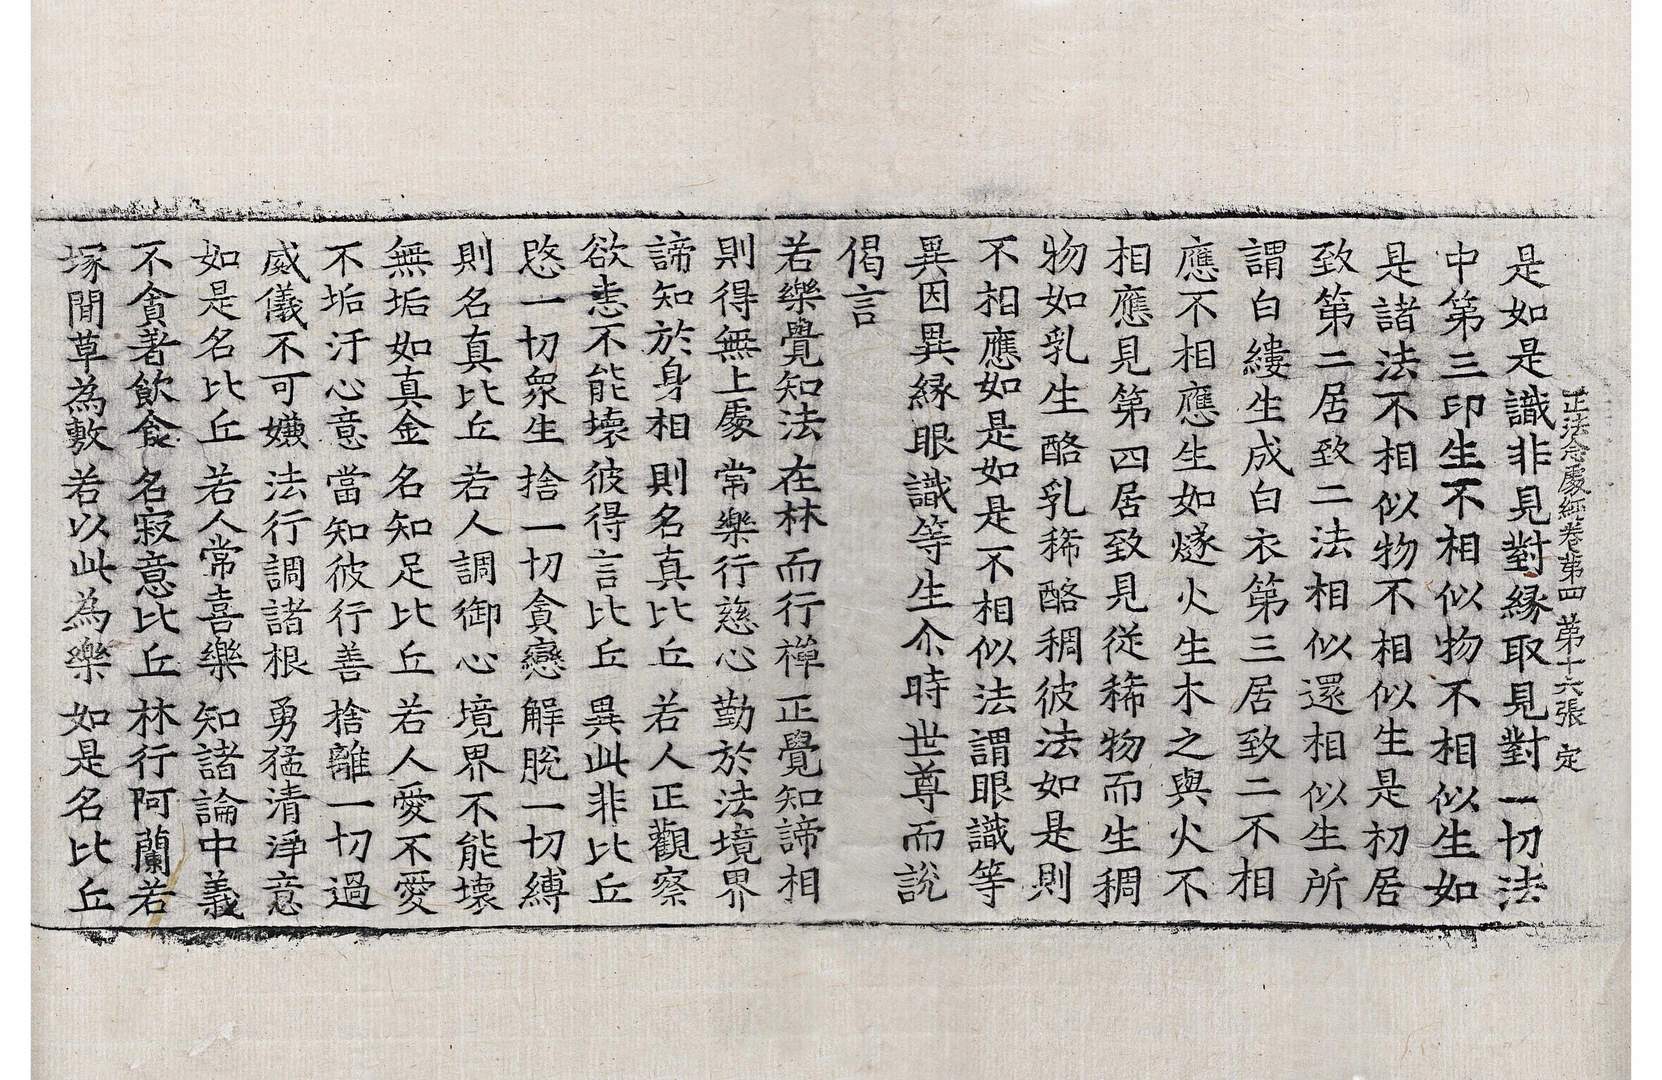 正法念處經卷第四 第十六張 定
是如是識非見對緣取見對一切法
中第三印生不相似物不相似生如
是諸法不相似物不相似生是初居
致第二居致二法相似還相似生所
謂白縷生成白衣第三居致二不相
應不相應生如燧火生木之與火不
相應見第四居致見從稀物而生稠
物如乳生酪乳稀酪稠彼法如是則
不相應如是如是不相似法謂眼識等
異因異緣眼識等生尒時世尊而說
偈言
若樂覺知法 在林而行禪 正覺知諦相
則得無上處 常樂行慈心 勤於法境界
諦知於身相 則名真比丘 若人正觀察
欲恚不能壞 彼得言比丘 異此非比丘
愍一切眾生 捨一切貪戀 解脫一切縛
則名真比丘 若人調御心 境界不能壞
無垢如真金 名知足比丘 若人愛不愛
不垢汙心意 當知彼行善 捨離一切過
威儀不可嫌 法行調諸根 勇猛清淨意
如是名比丘 若人常喜樂 知諸論中義
不貪著飲食 名寂意比丘 林行阿蘭若
塚間草為敷 若以此為樂 如是名比丘